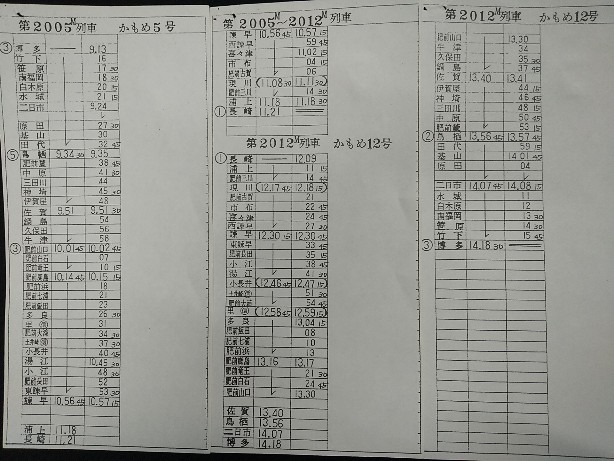 第2005M列車 かもめ5号
③ 博多 9.13
竹下 16
笹原 17 30
南福岡 18 30
白木原 20 15
水城 21 15
二日市 9.24
原田 27 30
基山 30
田代 32 45
⑤ 鳥栖 9.34 30 9.35
肥前麓 38 45
中原 41 30
三田川 44
神埼 45 45
伊賀屋 48
佐賀 9.51 9.51 30
鍋島 54
久保田 56
牛津 58
③ 肥前山口 10.01 45 10.02 45
肥前白石 07
肥前竜王 10 15
肥前鹿島 10.14 45 10.15 15
肥前浜 18
肥前七浦 21
肥前飯田 23
多良 26 30
里(信) 31
肥前大浦 34 30
土井崎(信) 37 30
小長井 40 45
湯江 10.45 30
小江 48 30
肥前長田 52
東諫早 53 30
諫早 10.56 45 10.57 15
浦上 11.18
長崎 11.21
第2005M~2012M列車
諫早 10.56 45 10.57 15
西諫早 59 45
喜々津 11.02 15
市布 04 15
肥前古賀 06
現川 (11.08 30 11.11 30)
肥前三川 14 30
浦上 11.18 11.18 30
① 長崎 11.21
第2012M列車 かもめ12号
① 長崎 12.09
浦上 11 15
肥前三川 14 45
現川 (12.17 45 12.18 15)
肥前古賀 21
市布 22 45
喜々津 24 45
西諫早 27 30
諫早 12.30 15 12.30 45
東諫早 33 45
肥前長田 35 15
小江 38 45
湯江 41 30
小長井 (12.46 45 12.47 15)
土井崎(信) 51 30
肥前大浦 54 45
里(信) (12.58 45 12.59 15)
多良 13.04 15
肥前飯田 08
肥前七浦 10
肥前浜 13
肥前鹿島 13.16 13.17
肥前竜王 21 30
肥前白石 24 45
肥前山口 13.30
佐賀 13.40
鳥栖 13.56
二日市 14.07
博多 14.18
第2012M列車 かもめ12号
肥前山口 13.30
牛津 34
久保田 35 30
鍋島 37 45
佐賀 13.40 13.41
伊賀屋 44 15
神埼 46 45
三田川 48 15
中原 50 45
肥前麓 53 15
② 鳥栖 13.56 45 13.57 45
田代 59 15
基山 14.01 45
原田 04
二日市 14.07 45 14.08 15
水城 11
白木原 12
南福岡 13 30
笹原 14 30
竹下 15 45
③ 博多 14.18 30